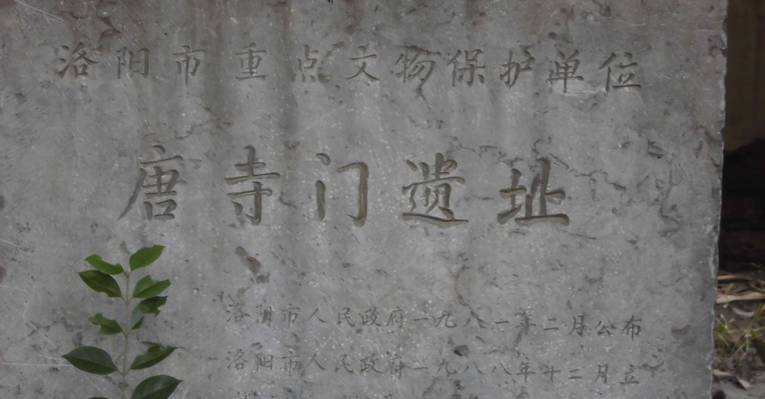 洛阳市重点文物保护单位
唐寺门遗址
洛阳市人民政府一九八一年二月公布
洛阳市人民政府一九八八年十二月立